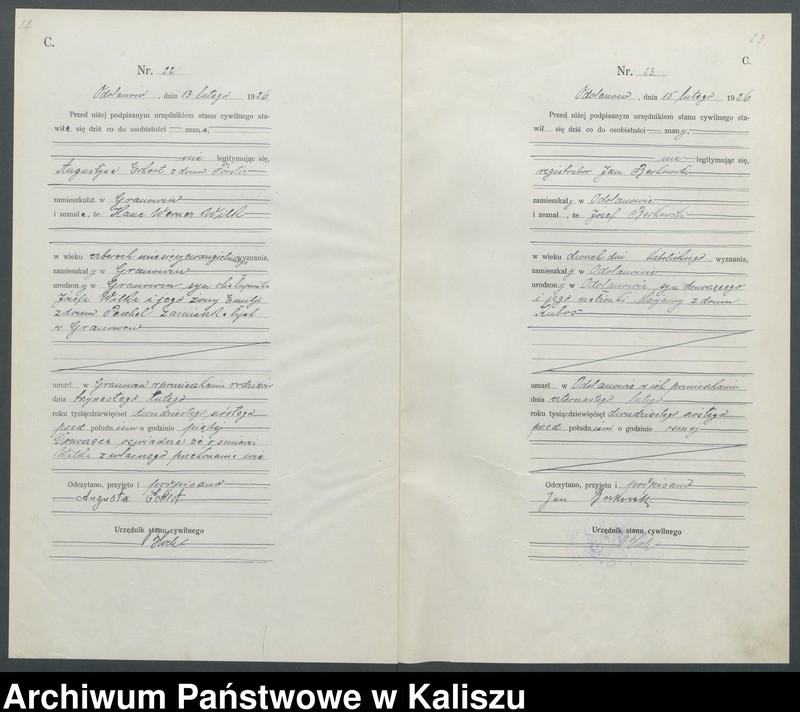 22
C.
Nr. 22
Odolanów, dnia 13 lutego 1926
Przed niżej podpisanym urzędnikiem stanu cywilnego sta-
wiła się dziś co do osobistości — zna na,
nie legitymując się,
Augustyna Eckert z domu
zamieszkała w Granowen
i zeznała, że Hans Werner Wilk
w wieku czterech miesięcy ewangielickiego wyznania,
zamieszkały w Granowen
urodzony w Granowen syn chałupnika
Józefa Wilka i jego żony Emilji
z domu zamieszkałych
w Granowen
umarł w Granowen w pomieszkaniu rodziców
dnia trzynastego lutego
roku tysiącdziewięćset dwudziestego szóstego
przed południem o godzinie piątej
Donosząca oświadcza że o śmierci
Wilka z własnego przekonania wie
Odczytano, przyjęto i podpisano
Augusta Eckert
Urzędnik stanu cywilnego
23
C.
Nr. 23
Odolanów, dnia 15 lutego 1926
Przed niżej podpisanym urzędnikiem stanu cywilnego sta-
wił się dziś co do osobistości — znany,
nie legitymując się,
registrator Jan Berkowski
zamieszkały w Odolanowie
i zeznał, że Józef Berkowski
w wieku dwóch dni katolickiego wyznania,
zamieszkały w Odolanowie
urodzony w Odolanowie syn donoszącego
i jego małżonki Maryanny z domu
Kubos
umarł w Odolanowie w ich pomieszkaniu
dnia czternastego lutego
roku tysiącdziewięćset dwudziestego szóstego
przed południem o godzinie ósmej
Odczytano, przyjęto i podpisano
Jan Berkowski
Urzędnik stanu cywilnego
Archiwum Państwowe w Kaliszu